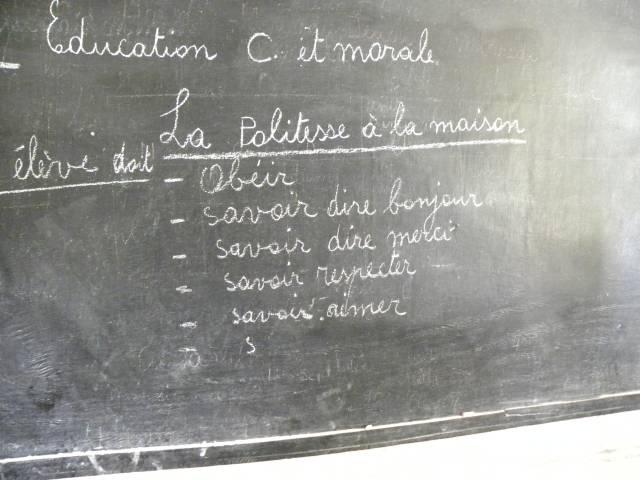 Education C. et morale
La Politesse à la maison
élève doit - Obéir
- savoir dire bonjour
- savoir dire merci
- savoir respecter
- savoir aimer
- s